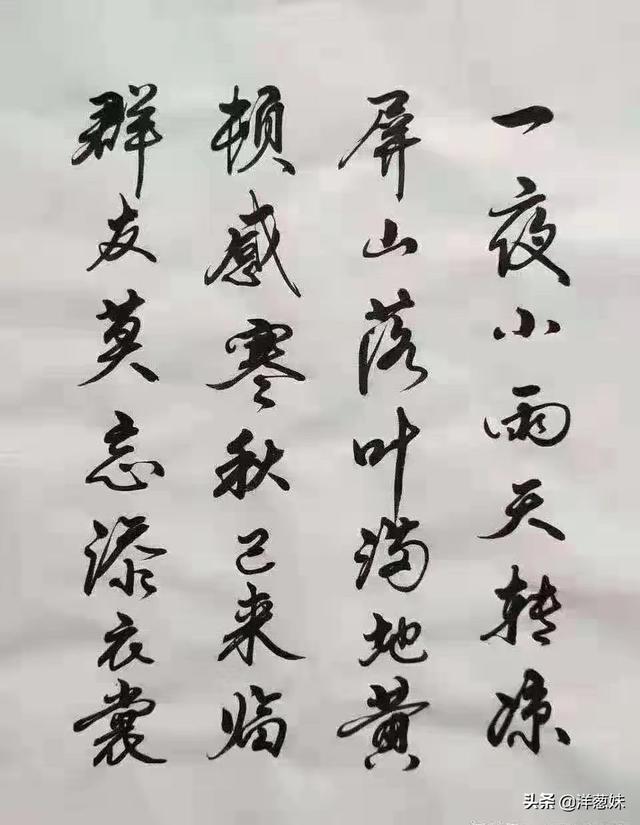 一夜小雨天转凉
屏山落叶满地黄
顿感寒秋已来临
群友莫忘添衣裳
头条 @洋葱妹